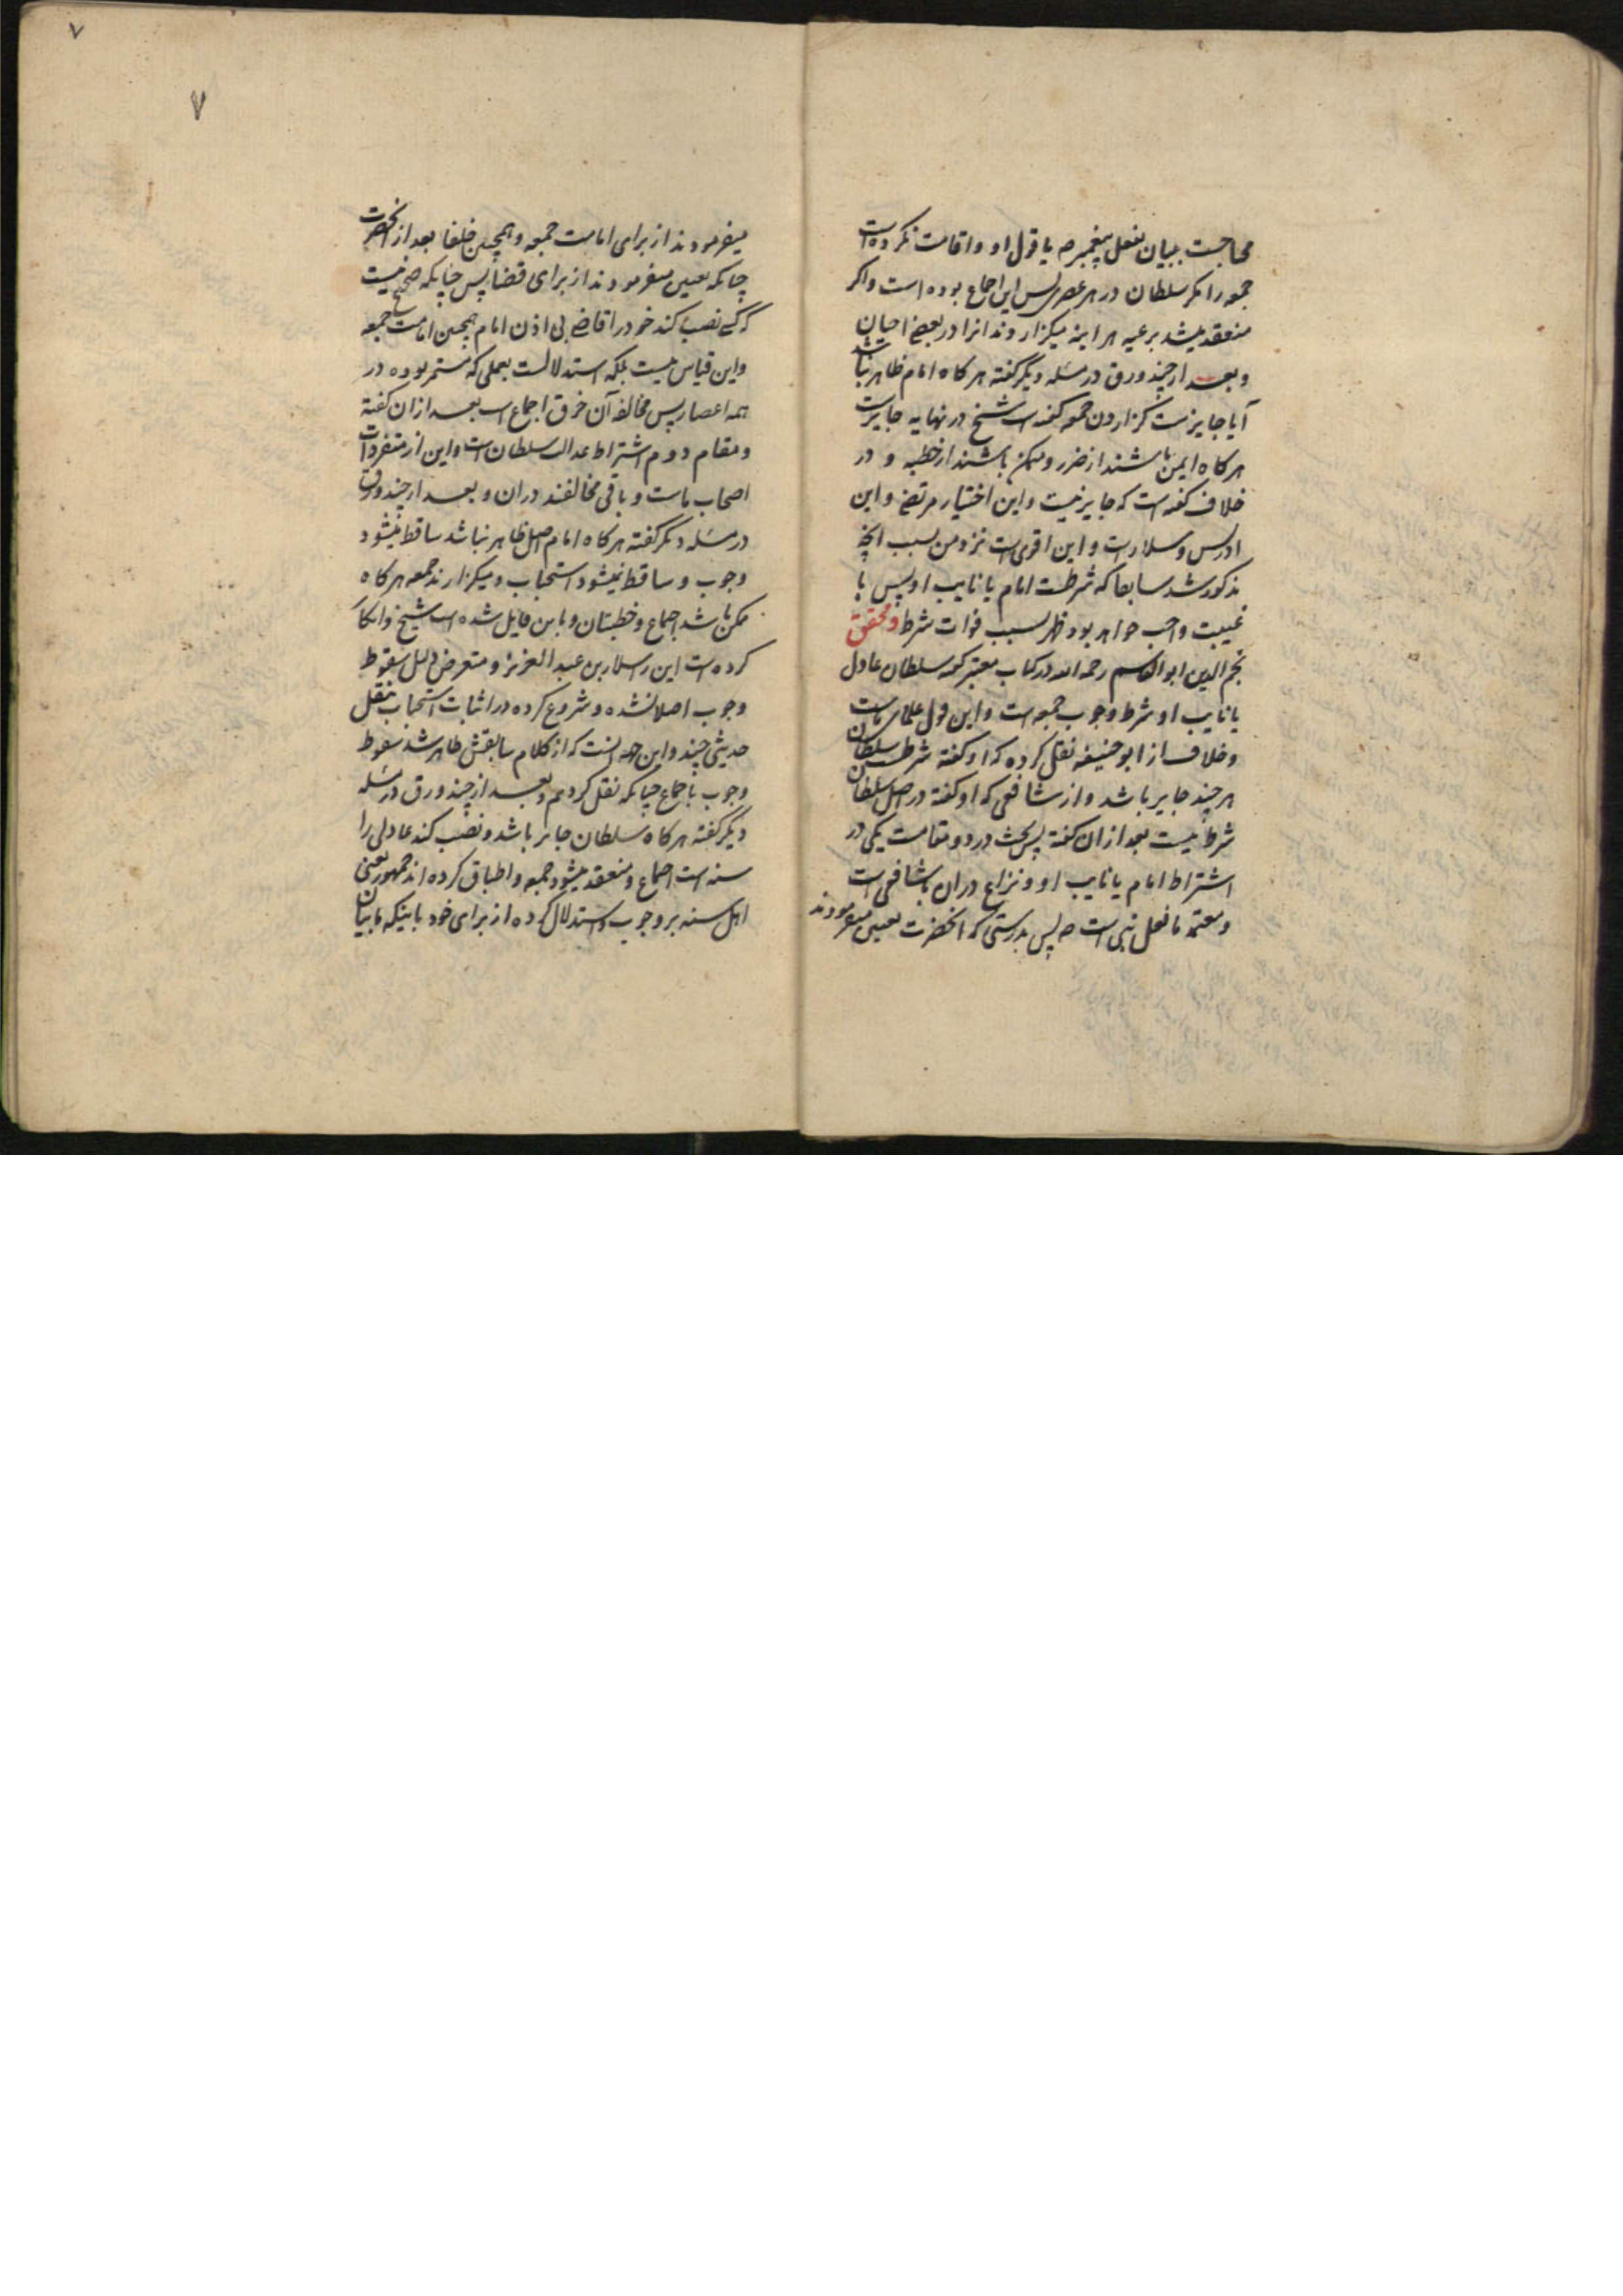 محتاجست ببیان بفعل پیغمبر صه یا قول او و اقامت نکرده است
جمعه را مکر سلطان در هر عصری پس این اجماع بوده است و اکر
منعقد میشد برعیه هر اینه میکزاروند انرا در بعضی احیان
و بعد از چند ورق در مسئله دیکر کفته هر کاه امام ظاهر نباشد
آیا جایزست کزاردن جمعه کفته است شیخ در نهایه جایزست
هر کاه ایمن باشند از ضرر و ممکن باشند از خطبه و در
خلاف کفته است که جایز نیست و این اختیار مرتضی و ابن
ادریس و سلارست و این اقوی است نزد من بسبب انچه
مذکور شد سابقا که شرطست امام یا نایب او پس با
غیبت واجب خواهد بود ظهر بسبب فوات شرط و محقق
نجم الدین ابو القاسم رحمه الله در کتاب معتبر کفته سلطان عادل
یا نایب او شرط وجوب جمعه است و این قول علمای ماست
و خلاف از ابو حنیفه نقل کرده که او کفته شرطست سلطان
هر چند جایر باشد و از شافعی که او کفته در اصل سلطان
شرط نیست بعد از ان کفته پس بحث در دو مقامست یکی در
اشتراط امام یا نایب او و نزاع دران با شافعی است
و معتمد ما فعل نبی است صه پس بدرستی که انحضرت تعیین میفرمودند
٧
٧
میفرمودند از برای امامت جمعه و همچنین خلفا بعد از انحضرت
چنانکه تعیین میفرمودند از برای قضا پس چنانکه صحیح نیست
که کسی نصب کند خود را قاضی بی اذن امام همچنین امامت جمعه
و این قیاس نیست بلکه استدلالست بعملی که مستمر بوده در
همه اعصار پس مخالفه آن خرق اجماع است بعد ازان کفته
و مقام دوم اشتراط عدالت سلطان است و این از متفردات
اصحاب ماست و باقی مخالفند دران و بعد از چند ورق
در مسئله دیکر کفته هر کاه امام اصل ظاهر نباشد ساقط میشود
وجوب و ساقط نمیشود استحباب و میکزارند جمعه هر کاه
ممکن باشد اجماع و خطبتان و باین قایل شده است شیخ و انکار
کرده است این را سلار بن عبد العزیز و متعرض دلیل سقوط
وجوب اصلا نشده و شروع کرده در اثبات استحباب بنقل
حدیثی چند و این جهه انست که از کلام سابقش ظاهر شد سقوط
وجوب باجماع چنانکه نقل کردیم و بعد از چند ورق در مسئله
دیکر کفته هر کاه سلطان جایر باشد و نصب کند عادلی را
سنه است اجماع و منعقد میشود جمعه و اطباق کرده اند جمهور یعنی
اهل سنه بر وجوب و استدلال کرده از برای خود باینکه ما بیان